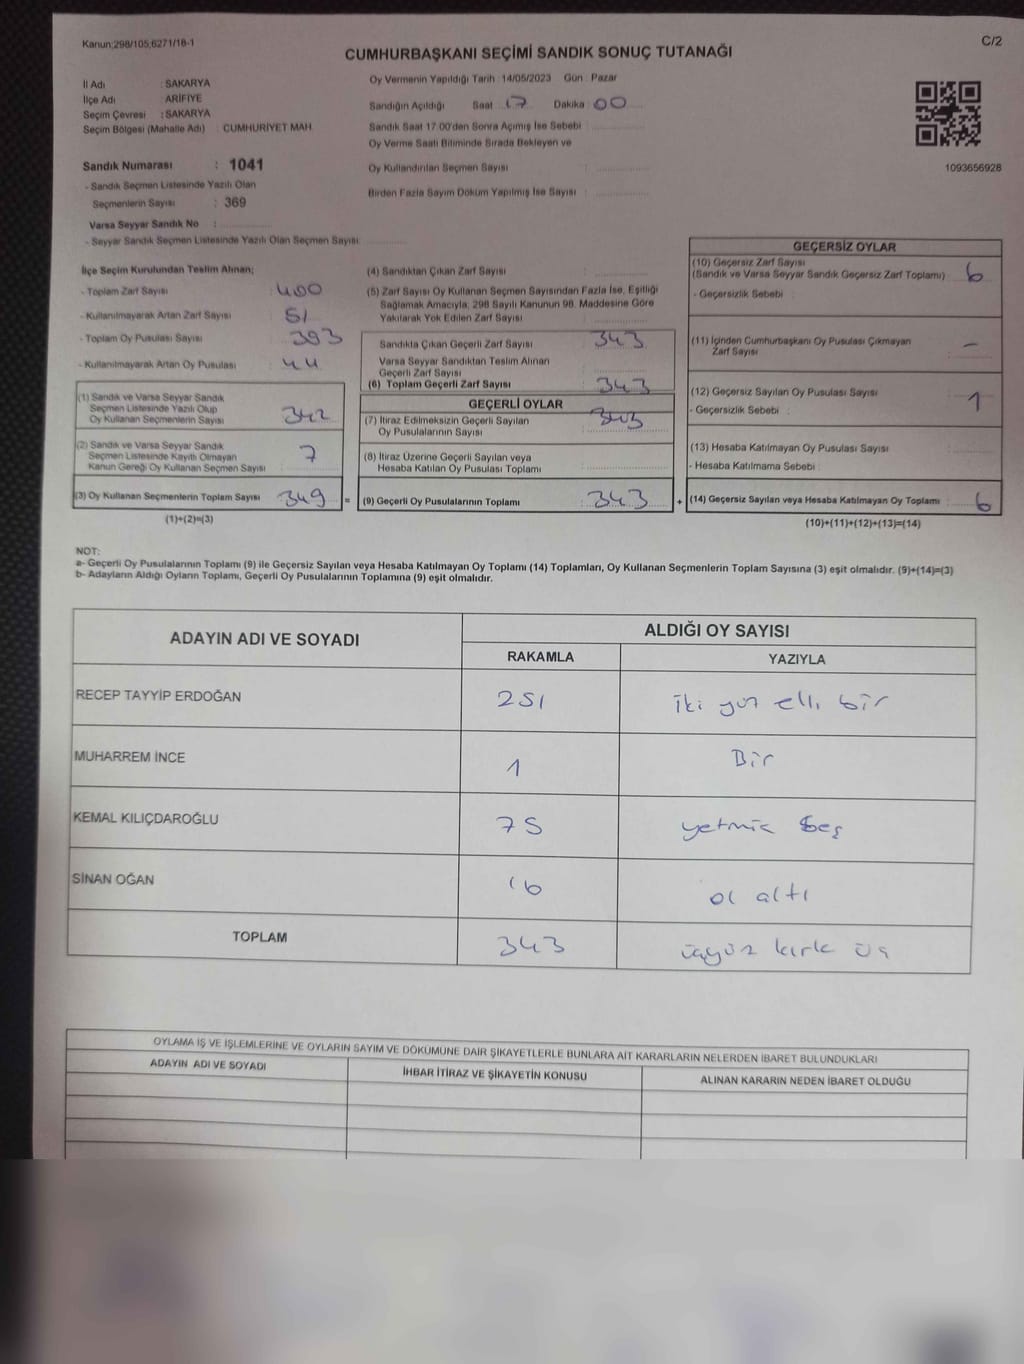 Kanun;298/105,6271/18-1
C/2
CUMHURBAŞKANI SEÇİMİ SANDIK SONUÇ TUTANAĞI
İl Adı : SAKARYA
İlçe Adı : ARİFİYE
Seçim Çevresi : SAKARYA
Seçim Bölgesi (Mahalle Adı) : CUMHURİYET MAH.
Oy Vermenin Yapıldığı Tarih : 14/05/2023 Gün : Pazar
Sandığın Açıldığı Saat 17 Dakika : 00
Sandık Saat 17.00'den Sonra Açımış İse Sebebi :
Oy Verme Saati Bitiminde Sırada Bekleyen ve
Oy Kullandırılan Seçmen Sayısı :
Birden Fazla Sayım Döküm Yapılmış İse Sayısı :
1093656928
Sandık Numarası : 1041
- Sandık Seçmen Listesinde Yazılı Olan
Seçmenlerin Sayısı : 369
Varsa Seyyar Sandık No :
- Seyyar Sandık Seçmen Listesinde Yazılı Olan Seçmen Sayısı:
İlçe Seçim Kurulundan Teslim Alınan;
- Toplam Zarf Sayısı : 400
- Kullanılmayarak Artan Zarf Sayısı : 51
- Toplam Oy Pusulası Sayısı : 393
- Kullanılmayarak Artan Oy Pusulası : 44
(1) Sandık ve Varsa Seyyar Sandık
Seçmen Listesinde Yazılı Olup
Oy Kullanan Seçmenlerin Sayısı : 342
(2) Sandık ve Varsa Seyyar Sandık
Seçmen Listesinde Kayıtlı Olmayan
Kanun Gereği Oy Kullanan Seçmen Sayısı : 7
(3) Oy Kullanan Seçmenlerin Toplam Sayısı : 349 =
(1)+(2)=(3)
(4) Sandıktan Çıkan Zarf Sayısı :
(5) Zarf Sayısı Oy Kullanan Seçmen Sayısından Fazla İse, Eşitliği
Sağlamak Amacıyla, 298 Sayılı Kanunun 98. Maddesine Göre
Yakılarak Yok Edilen Zarf Sayısı :
Sandıkta Çıkan Geçerli Zarf Sayısı : 343
Varsa Seyyar Sandıktan Teslim Alınan
Geçerli Zarf Sayısı :
(6) Toplam Geçerli Zarf Sayısı : 343
GEÇERLİ OYLAR
(7) İtiraz Edilmeksizin Geçerli Sayılan
Oy Pusulalarının Sayısı : 343
(8) İtiraz Üzerine Geçerli Sayılan veya
Hesaba Katılan Oy Pusulası Toplamı :
(9) Geçerli Oy Pusulalarının Toplamı : 343 +
GEÇERSİZ OYLAR
(10) Geçersiz Zarf Sayısı
(Sandık ve Varsa Seyyar Sandık Geçersiz Zarf Toplamı) : 6
- Geçersizlik Sebebi :
(11) İçinden Cumhurbaşkanı Oy Pusulası Çıkmayan
Zarf Sayısı : -
(12) Geçersiz Sayılan Oy Pusulası Sayısı : 1
- Geçersizlik Sebebi :
(13) Hesaba Katılmayan Oy Pusulası Sayısı :
- Hesaba Katılmama Sebebi :
(14) Geçersiz Sayılan veya Hesaba Katılmayan Oy Toplamı : 6
(10)+(11)+(12)+(13)=(14)
NOT:
a- Geçerli Oy Pusulalarının Toplamı (9) ile Geçersiz Sayılan veya Hesaba Katılmayan Oy Toplamı (14) Toplamları, Oy Kullanan Seçmenlerin Toplam Sayısına (3) eşit olmalıdır. (9)+(14)=(3)
b- Adayların Aldığı Oyların Toplamı, Geçerli Oy Pusulalarının Toplamına (9) eşit olmalıdır.
ADAYIN ADI VE SOYADI ALDIĞI OY SAYISI
RAKAMLA YAZIYLA
RECEP TAYYİP ERDOĞAN 251 iki yüz elli bir
MUHARREM İNCE 1 Bir
KEMAL KILIÇDAROĞLU 75 yetmiş beş
SİNAN OĞAN 16 altı
TOPLAM 343 üçyüz kırk üç
OYLAMA İŞ VE İŞLEMLERİNE VE OYLARIN SAYIM VE DÖKÜMÜNE DAİR ŞİKAYETLERLE BUNLARA AİT KARARLARIN NELERDEN İBARET BULUNDUKLARI
ADAYIN ADI VE SOYADI İHBAR İTİRAZ VE ŞİKAYETİN KONUSU ALINAN KARARIN NEDEN İBARET OLDUĞU